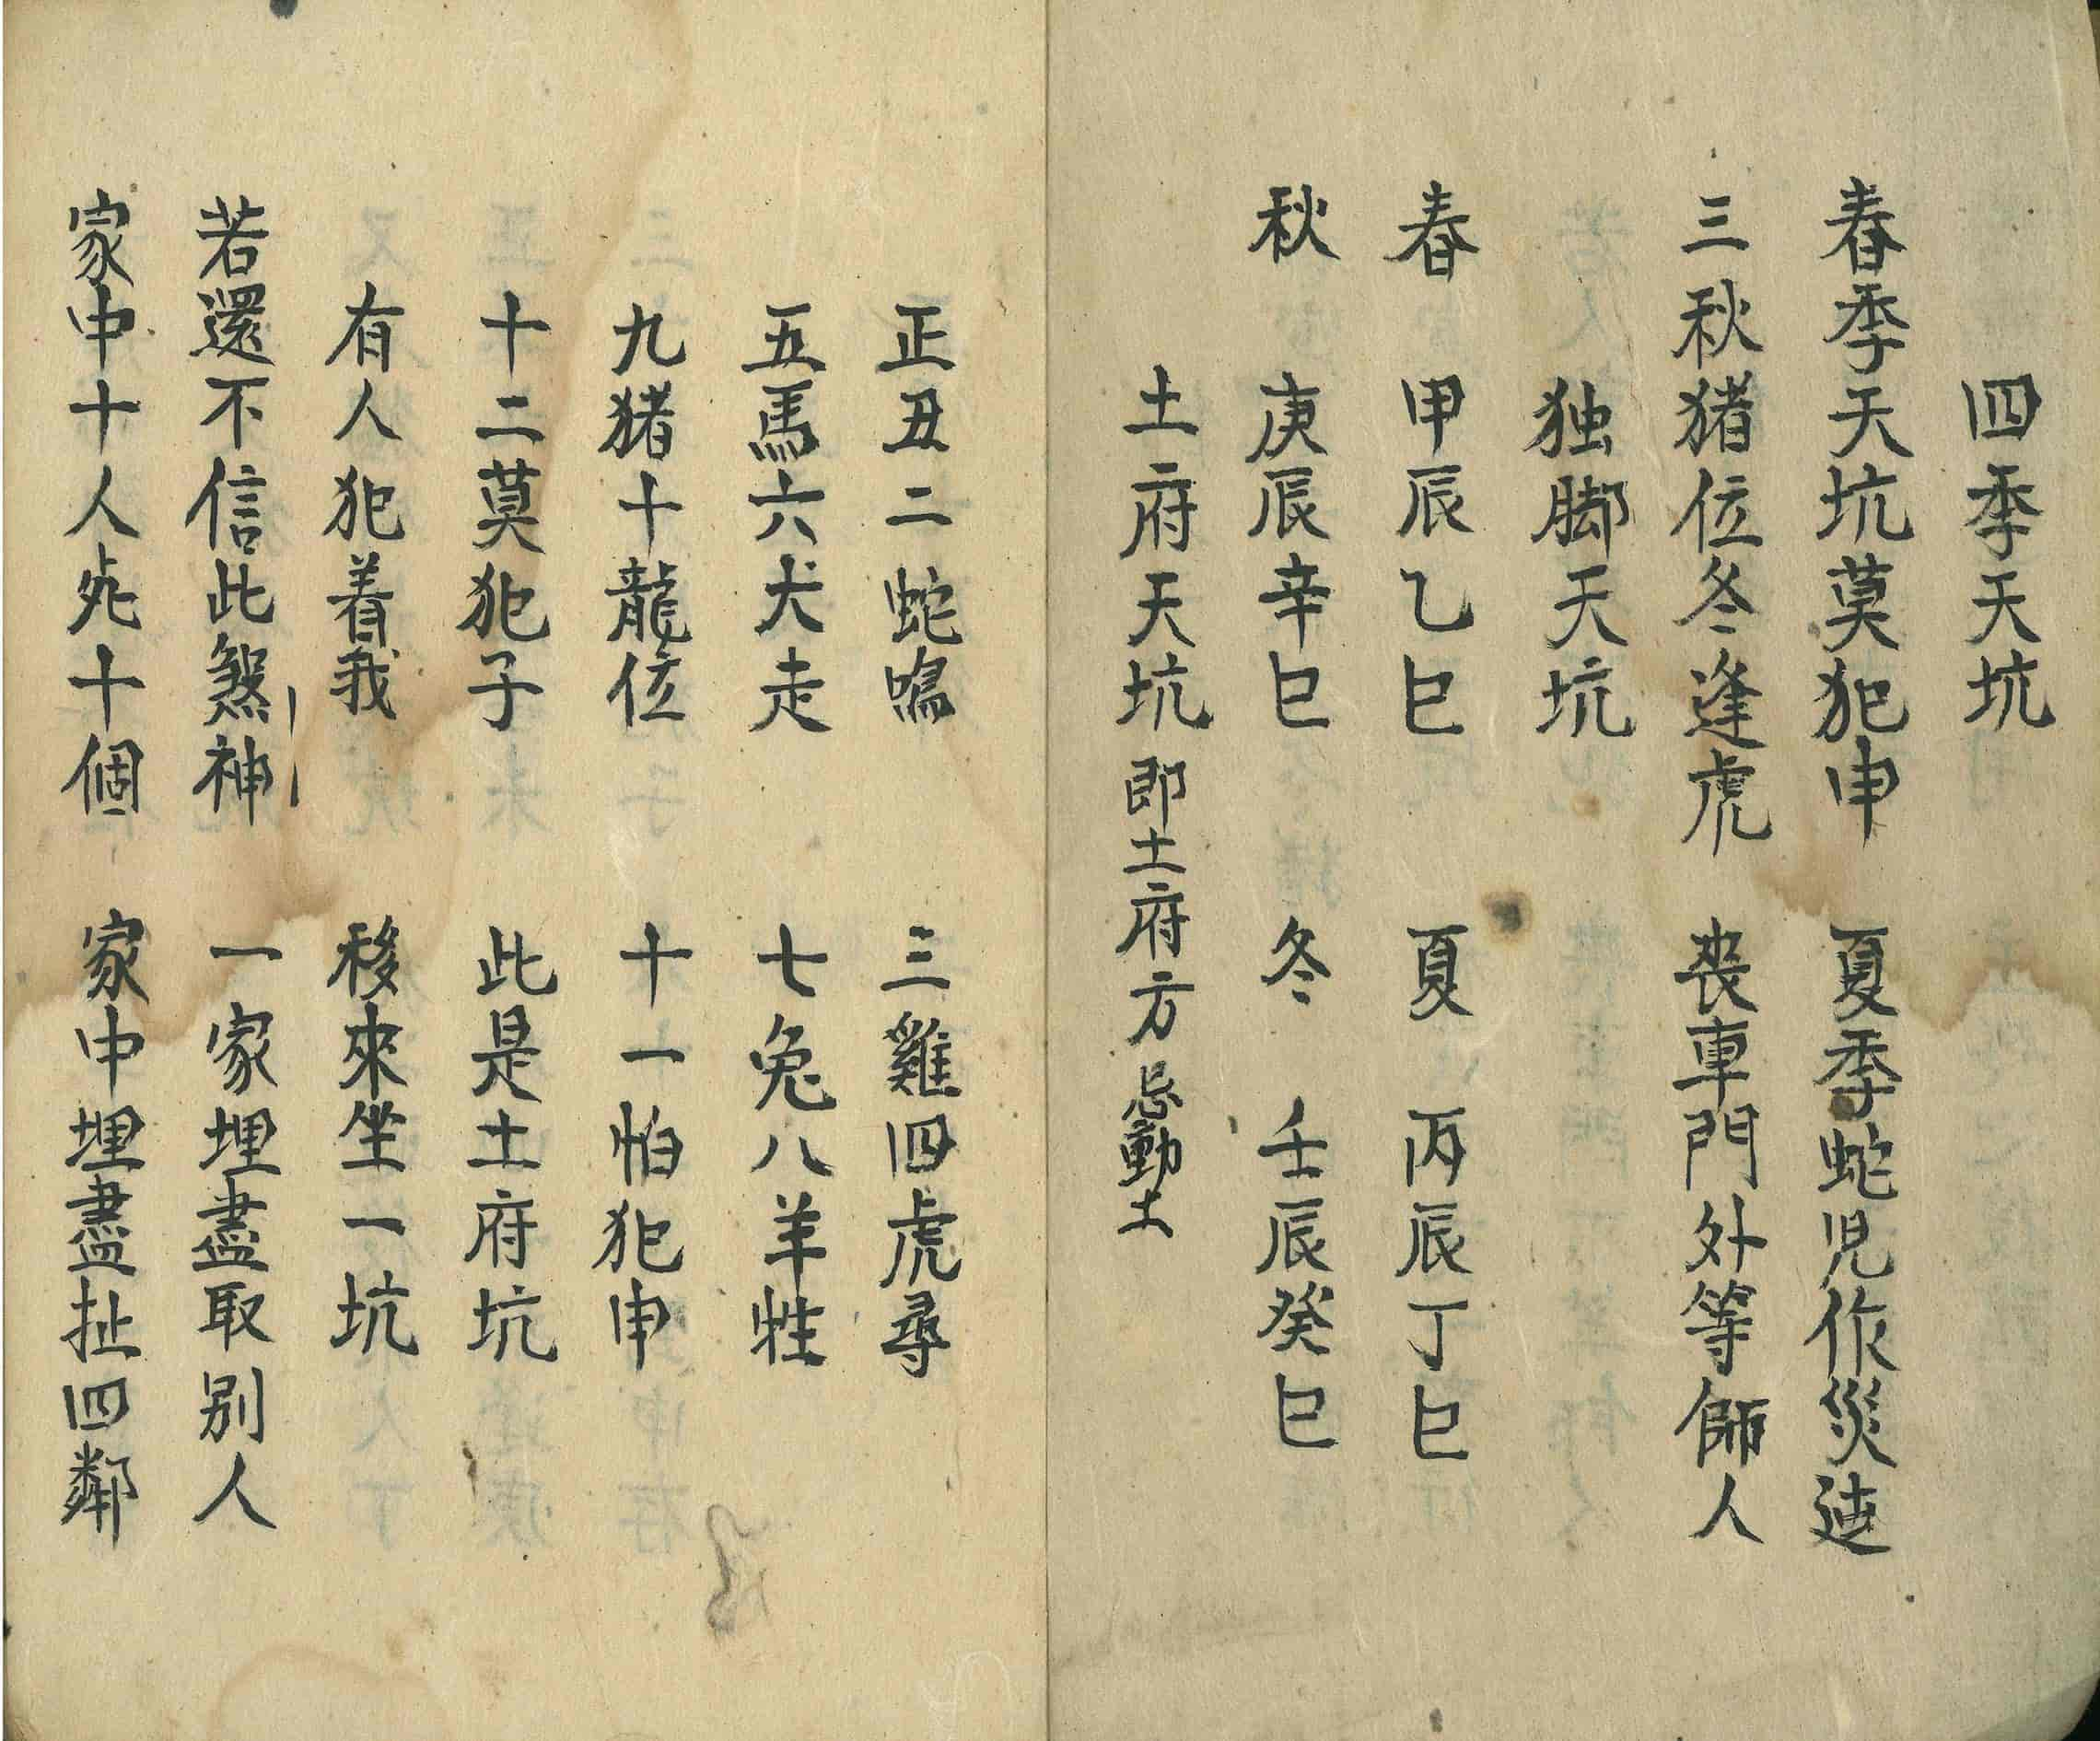 四季天坑
春季天坑莫犯申　夏季蛇児作災迍
三秋猪位冬逢虎　丧車門外等師人
独脚天坑
春　甲辰乙巳　夏　丙辰丁巳
秋　庚辰辛巳　冬　壬辰癸巳
土府天坑 即土府方 忌動土
正丑二蛇鳴　三雞四虎尋
五馬六犬走　七兔八羊牲
九猪十龍位　十一怕犯申
十二莫犯子　此是土府坑
有人犯着我　移來坐一坑
若還不信此煞神　一家埋盡取別人
家中十人死十個　家中埋盡扯四鄰